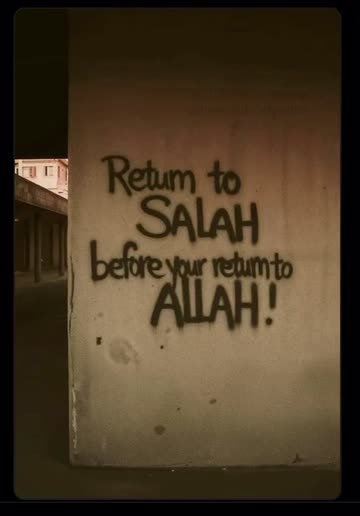 Return to
SALAH
before your return to
ALLAH!